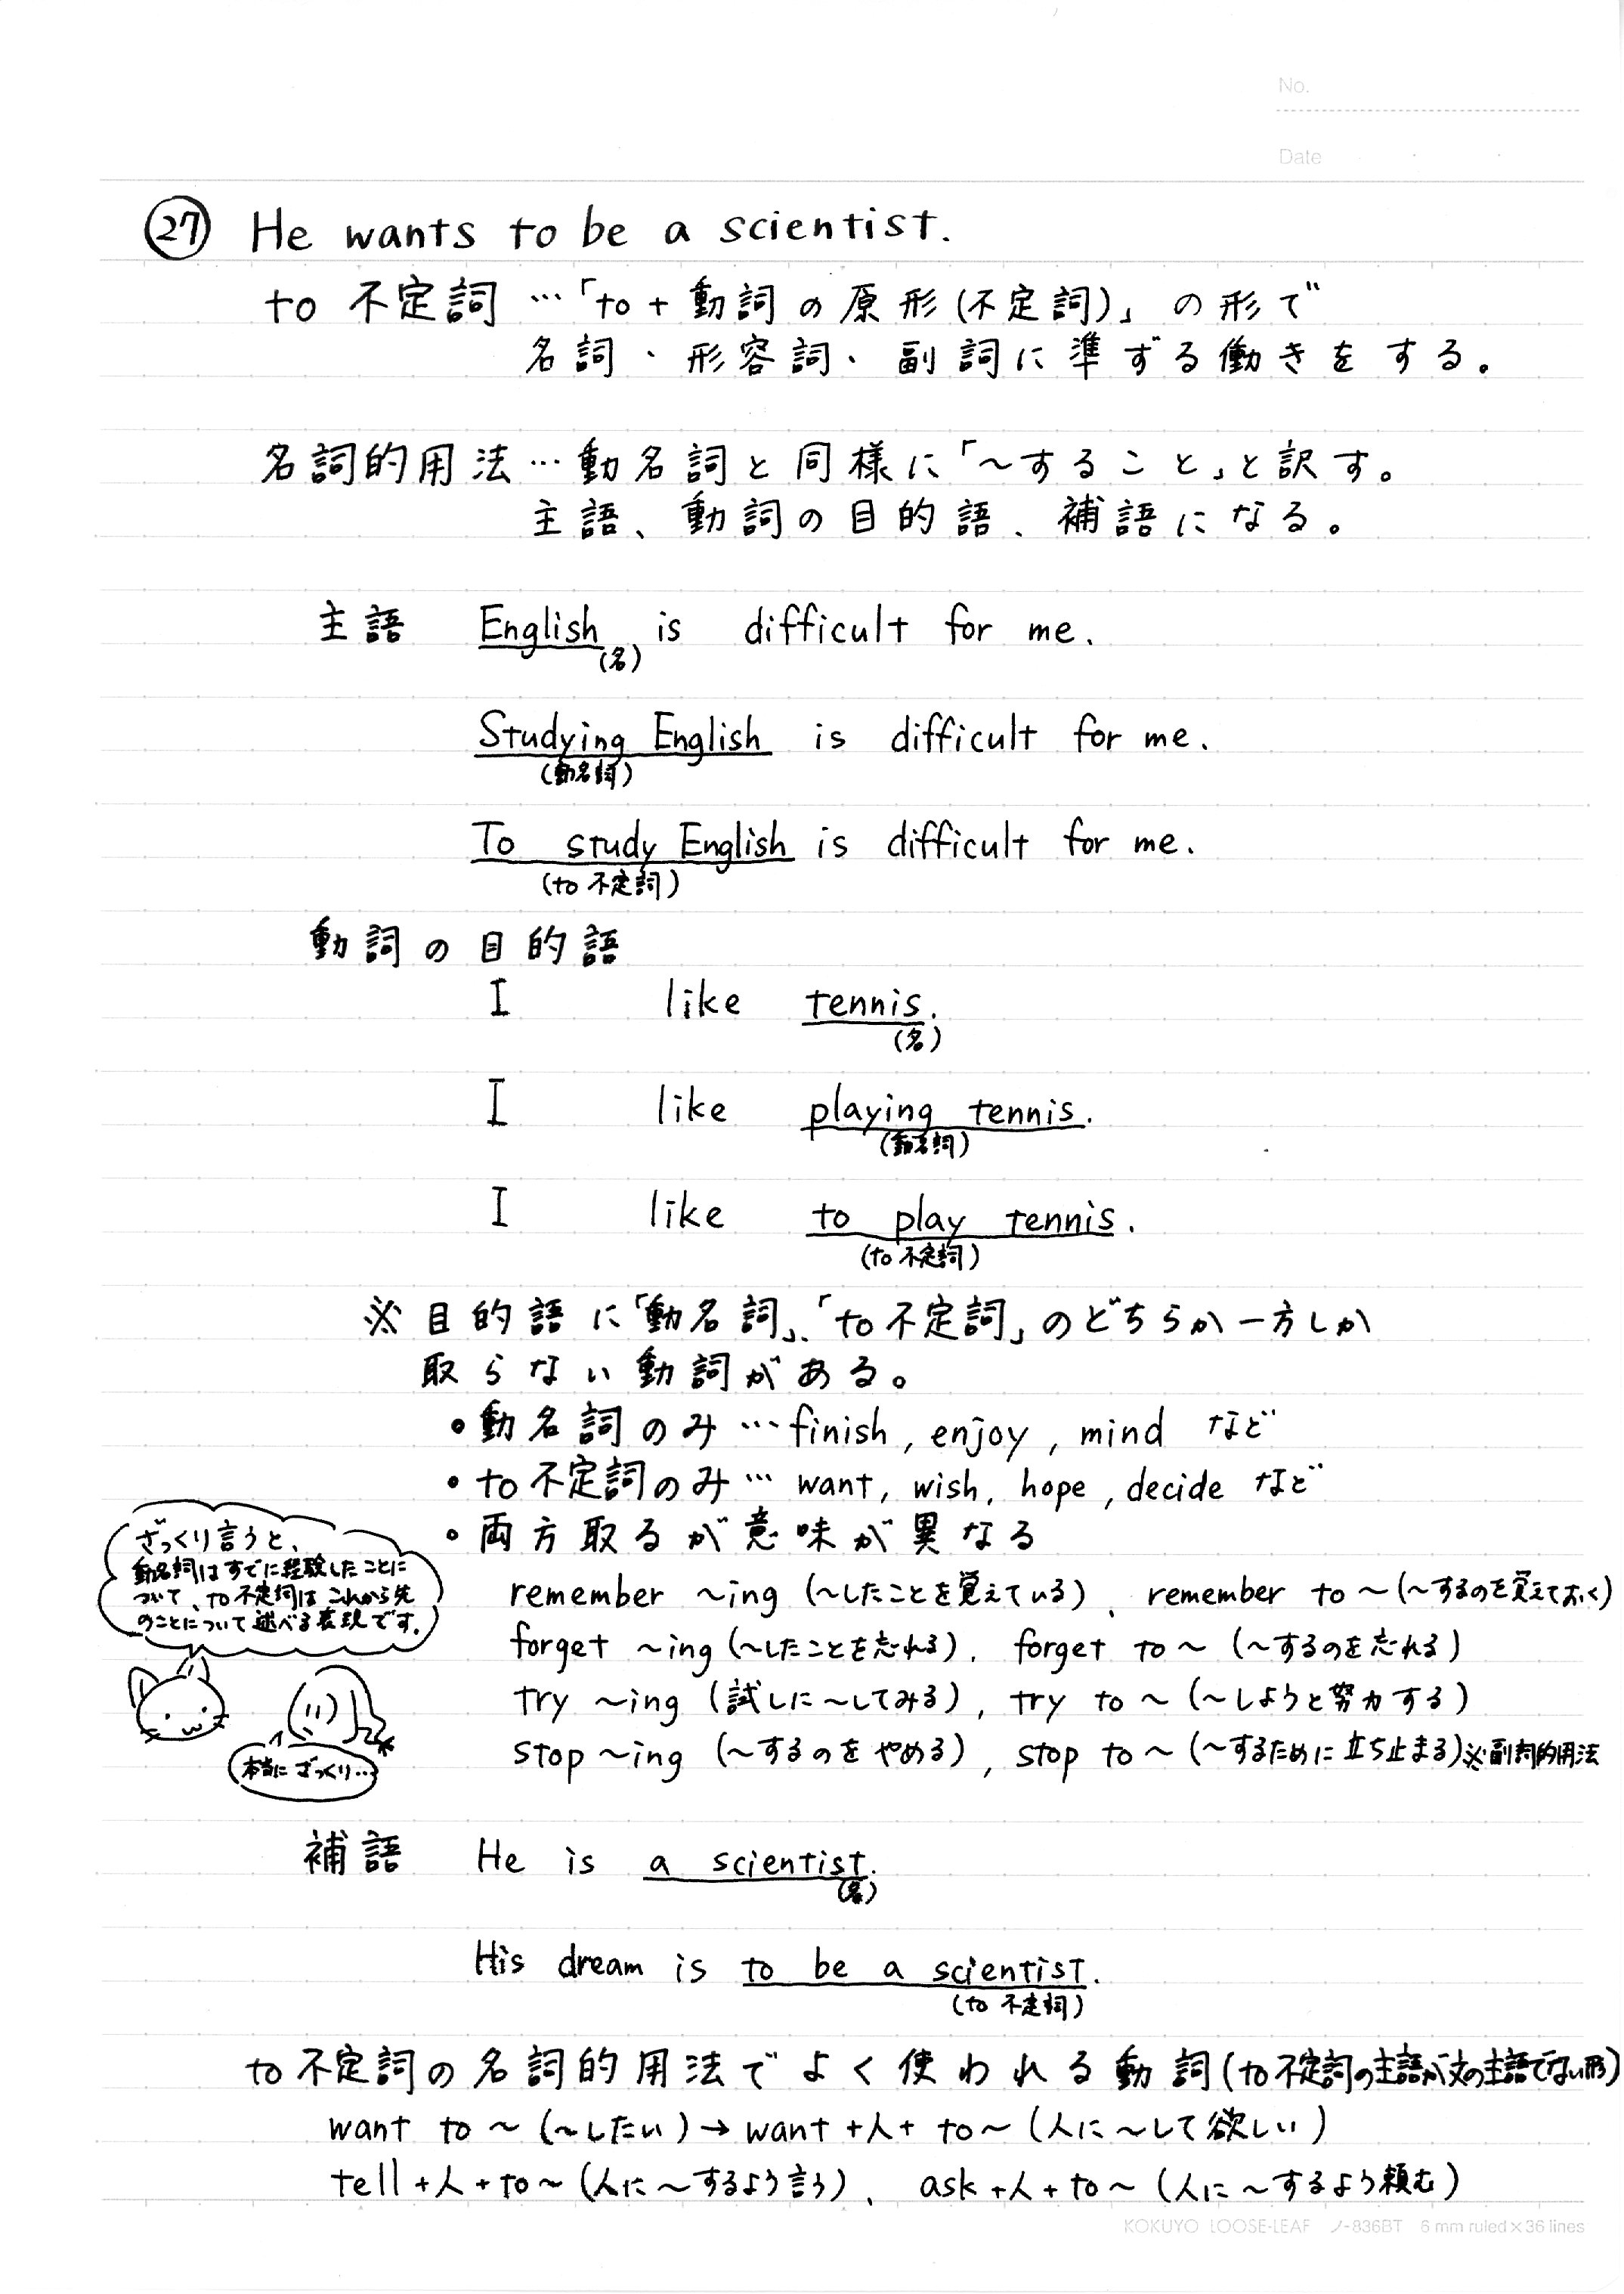 No.
Date
㉗ He wants to be a scientist.
to 不定詞 …「to + 動詞の原形(不定詞)」の形で
名詞・形容詞・副詞に準ずる働きをする。
名詞的用法…動名詞と同様に「〜すること」と訳す。
主語、動詞の目的語、補語になる。
主語 English is difficult for me.
(名)
Studying English is difficult for me.
(動名詞)
To study English is difficult for me.
(to 不定詞)
動詞の目的語
I like tennis.
(名)
I like playing tennis.
(動名詞)
I like to play tennis.
(to 不定詞)
※目的語に「動名詞」、「to不定詞」のどちらか一方しか
取らない動詞がある。
・動名詞のみ…finish, enjoy, mind など
・to不定詞のみ… want, wish, hope, decide など
・両方取るが意味が異なる
remember 〜ing (〜したことを覚えている)、remember to 〜(〜するのを覚えておく)
forget 〜ing (〜したことを忘れる)、forget to 〜 (〜するのを忘れる)
try 〜ing (試しに〜してみる), try to 〜 (〜しようと努力する)
stop 〜ing (〜するのをやめる), stop to 〜 (〜するために立ち止まる)※副詞的用法
ざっくり言うと、
動名詞はすでに経験したことに
ついて、to不定詞はこれから先
のことについて述べる表現です。
本当にざっくり…
補語 He is a scientist.
(名)
His dream is to be a scientist.
(to 不定詞)
to不定詞の名詞的用法でよく使われる動詞(to不定詞の主語が文の主語でない形)
want to 〜 (〜したい)→ want +人+ to〜(人に〜して欲しい)
tell +人+to〜(人に〜するよう言う)、ask +人+to〜(人に〜するよう頼む)
KOKUYO LOOSE-LEAF ノ-836BT 6 mm ruled×36 lines